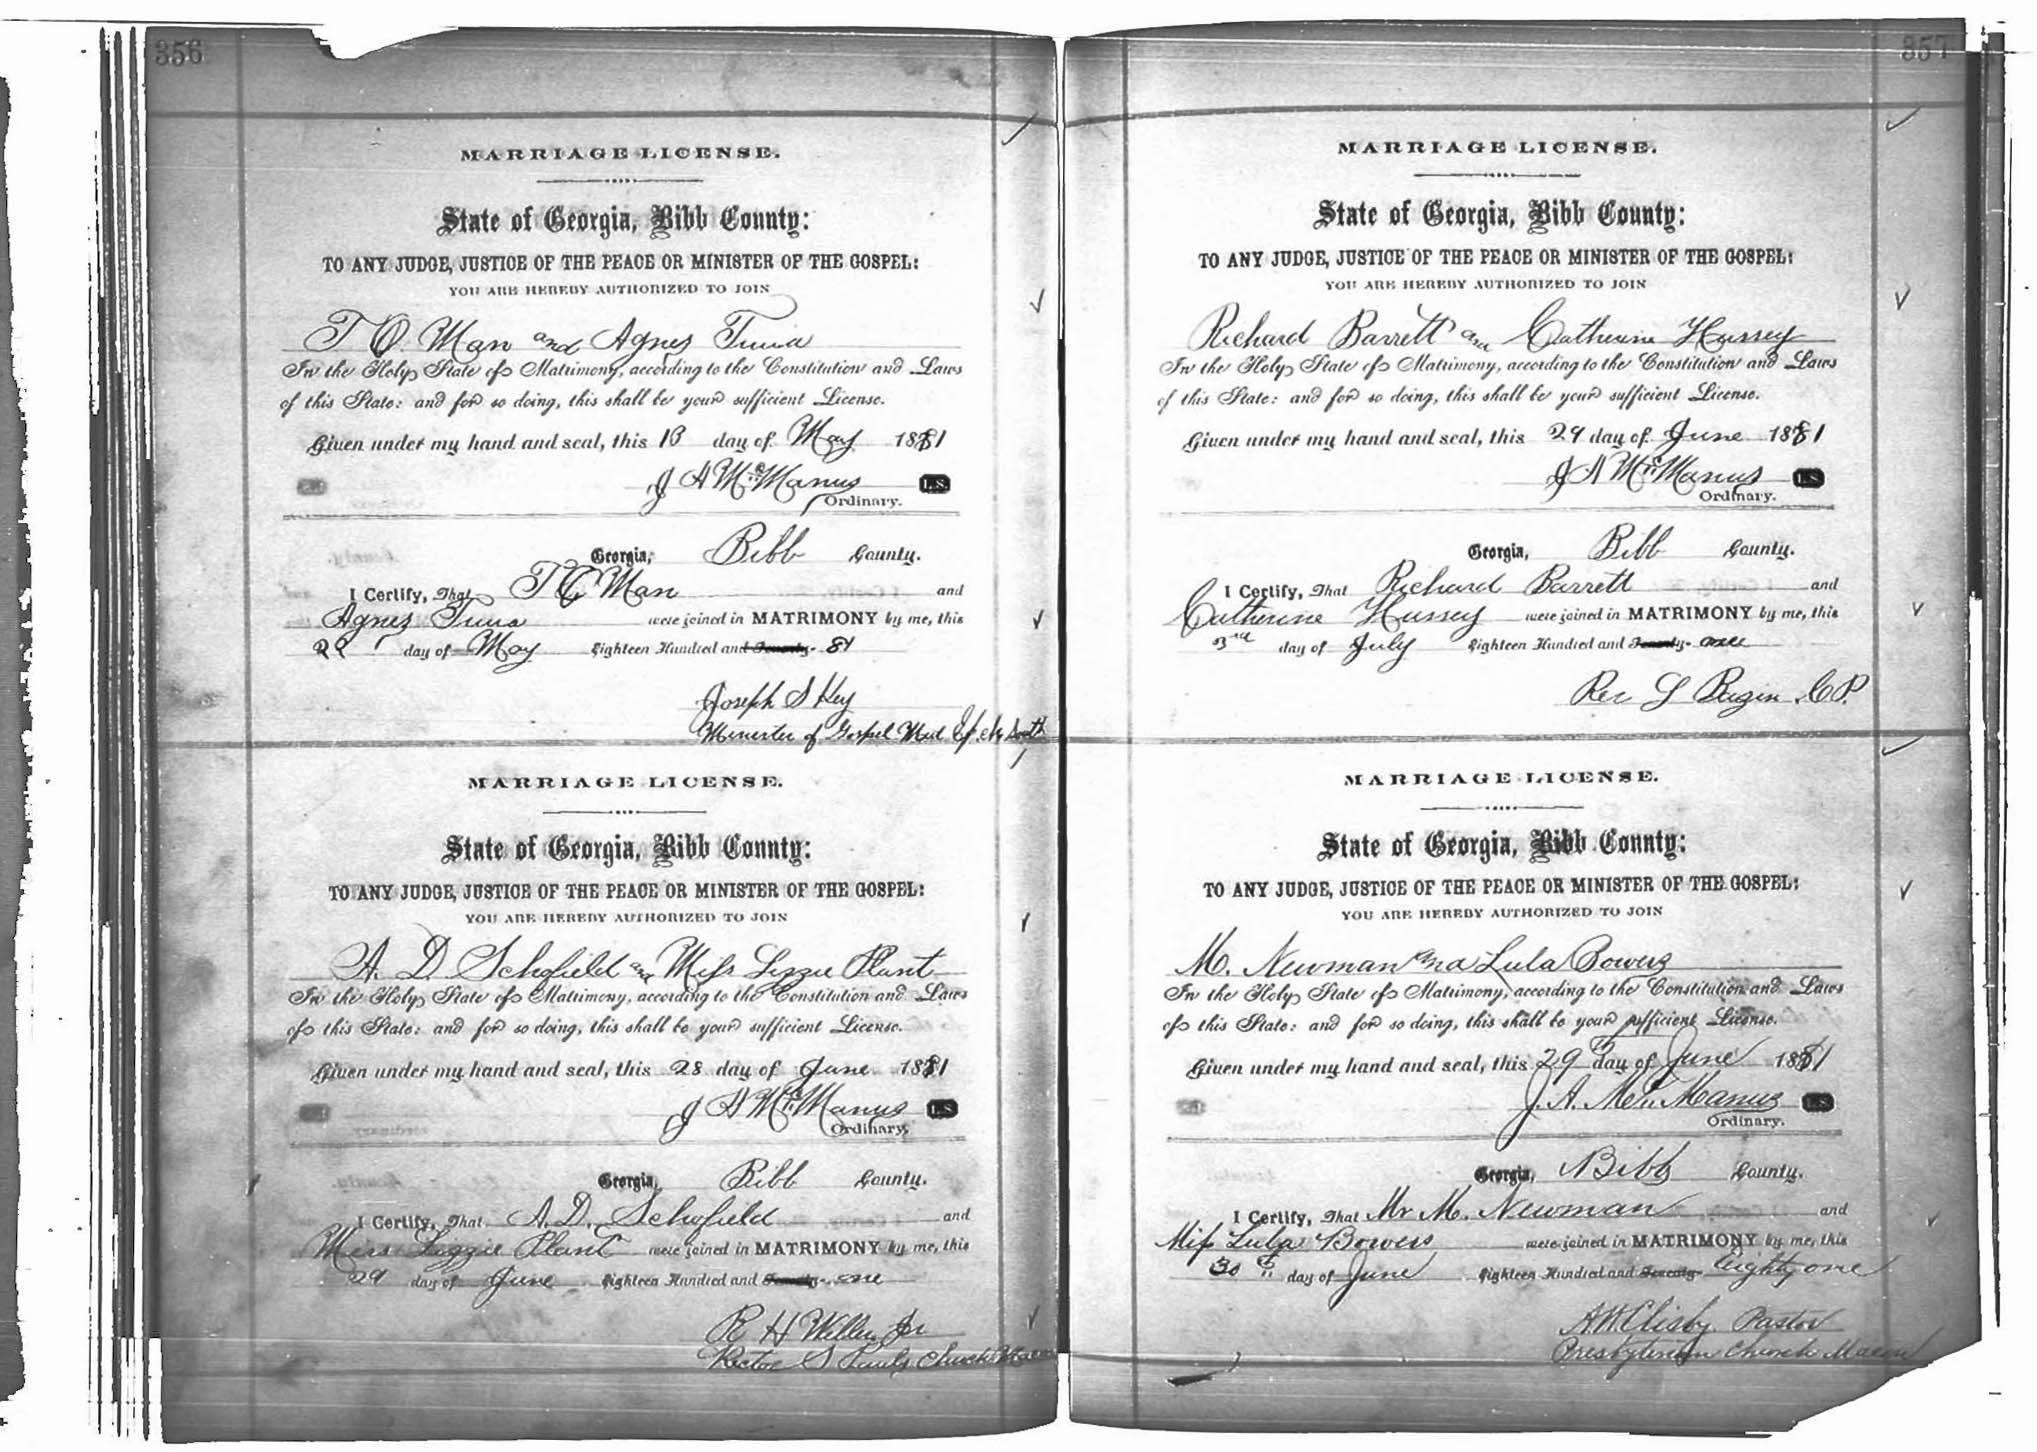 356
MARRIAGE LICENSE.
State of Georgia, Bibb County:
TO ANY JUDGE, JUSTICE OF THE PEACE OR MINISTER OF THE GOSPEL:
YOU ARE HEREBY AUTHORIZED TO JOIN
T O. Man and Agnes
In the Holy State of Matrimony, according to the Constitution and Laws
of this State: and for so doing, this shall be your sufficient License.
Given under my hand and seal, this 13 day of May 1881
J A McManus L.S.
Ordinary.
Georgia, Bibb County.
I Certify, That T O Man and
Agnes were joined in MATRIMONY by me, this
29 day of May Eighteen Hundred and Seventy- 81
Joseph S Key
Minister of Gospel Meth Ep Ch South
MARRIAGE LICENSE.
State of Georgia, Bibb County:
TO ANY JUDGE, JUSTICE OF THE PEACE OR MINISTER OF THE GOSPEL:
YOU ARE HEREBY AUTHORIZED TO JOIN
A. D Schofield and Miss Lizzie Plant
In the Holy State of Matrimony, according to the Constitution and Laws
of this State: and for so doing, this shall be your sufficient License.
Given under my hand and seal, this 28 day of June 1881
J A McManus L.S.
Ordinary.
Georgia, Bibb County.
I Certify, That A. D. Schofield and
Miss Lizzie Plant were joined in MATRIMONY by me, this
29 day of June Eighteen Hundred and Seventy- one
R H Jr
Rector S Pauls Church Macon
357
MARRIAGE LICENSE.
State of Georgia, Bibb County:
TO ANY JUDGE, JUSTICE OF THE PEACE OR MINISTER OF THE GOSPEL:
YOU ARE HEREBY AUTHORIZED TO JOIN
Richard Barrett and Catherine Hussey
In the Holy State of Matrimony, according to the Constitution and Laws
of this State: and for so doing, this shall be your sufficient License.
Given under my hand and seal, this 29 day of June 1881
J A McManus L.S.
Ordinary.
Georgia, Bibb County.
I Certify, That Richard Barrett and
Catherine Hussey were joined in MATRIMONY by me, this
3rd day of July Eighteen Hundred and Seventy- one
Rev C.P.
MARRIAGE LICENSE.
State of Georgia, Bibb County:
TO ANY JUDGE, JUSTICE OF THE PEACE OR MINISTER OF THE GOSPEL:
YOU ARE HEREBY AUTHORIZED TO JOIN
M. Newman and Lula Bowers
In the Holy State of Matrimony, according to the Constitution and Laws
of this State: and for so doing, this shall be your sufficient License.
Given under my hand and seal, this 29th day of June 1881
J. A. McManus L.S.
Ordinary.
Georgia, Bibb County.
I Certify, That Mr M. Newman and
Miss Lula Bowers were joined in MATRIMONY by me, this
30th day of June Eighteen Hundred and Seventy- Eighty one
A W Clisby Pastor
Presbyterian Church Macon